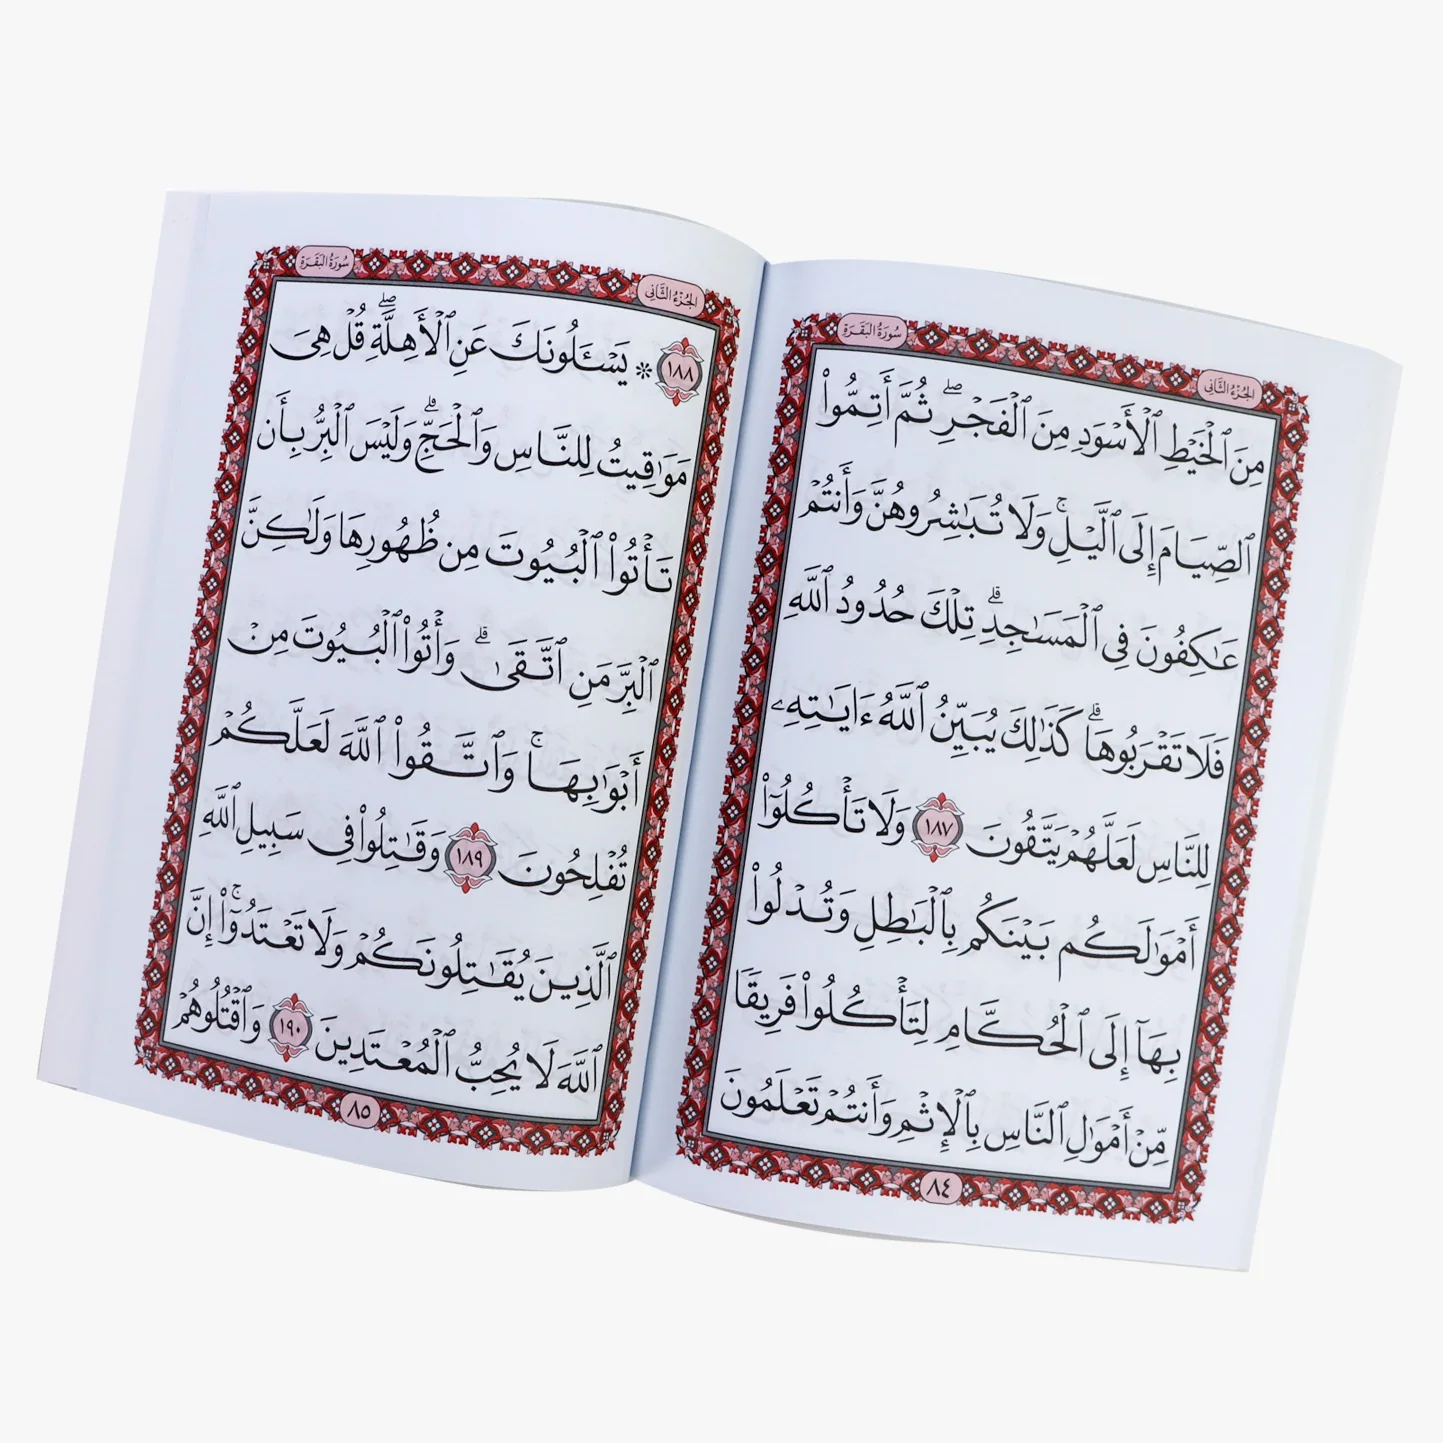 سُورَةُ البَقَرَةِ
الجُزْءُ الثَّانِي
مِنَ ٱلْخَيْطِ ٱلْأَسْوَدِ مِنَ ٱلْفَجْرِ ۖ ثُمَّ أَتِمُّوا۟
ٱلصِّيَامَ إِلَى ٱلَّيْلِ ۚ وَلَا تُبَـٰشِرُوهُنَّ وَأَنتُمْ
عَـٰكِفُونَ فِى ٱلْمَسَـٰجِدِ ۗ تِلْكَ حُدُودُ ٱللَّهِ
فَلَا تَقْرَبُوهَا ۗ كَذَٰلِكَ يُبَيِّنُ ٱللَّهُ ءَايَـٰتِهِۦ
لِلنَّاسِ لَعَلَّهُمْ يَتَّقُونَ ١٨٧ وَلَا تَأْكُلُوٓا۟
أَمْوَٰلَكُم بَيْنَكُم بِٱلْبَـٰطِلِ وَتُدْلُوا۟
بِهَآ إِلَى ٱلْحُكَّامِ لِتَأْكُلُوا۟ فَرِيقًا
مِّنْ أَمْوَٰلِ ٱلنَّاسِ بِٱلْإِثْمِ وَأَنتُمْ تَعْلَمُونَ
٨٤
سُورَةُ البَقَرَةِ
الجُزْءُ الثَّانِي
١٨٨ ۞ يَسْـَٔلُونَكَ عَنِ ٱلْأَهِلَّةِ ۖ قُلْ هِىَ
مَوَٰقِيتُ لِلنَّاسِ وَٱلْحَجِّ ۗ وَلَيْسَ ٱلْبِرُّ بِأَن
تَأْتُوا۟ ٱلْبُيُوتَ مِن ظُهُورِهَا وَلَـٰكِنَّ
ٱلْبِرَّ مَنِ ٱتَّقَىٰ ۗ وَأْتُوا۟ ٱلْبُيُوتَ مِنْ
أَبْوَٰبِهَا ۚ وَٱتَّقُوا۟ ٱللَّهَ لَعَلَّكُمْ
تُفْلِحُونَ ١٨٩ وَقَـٰتِلُوا۟ فِى سَبِيلِ ٱللَّهِ
ٱلَّذِينَ يُقَـٰتِلُونَكُمْ وَلَا تَعْتَدُوٓا۟ ۚ إِنَّ
ٱللَّهَ لَا يُحِبُّ ٱلْمُعْتَدِينَ ١٩٠ وَٱقْتُلُوهُمْ
٨٥